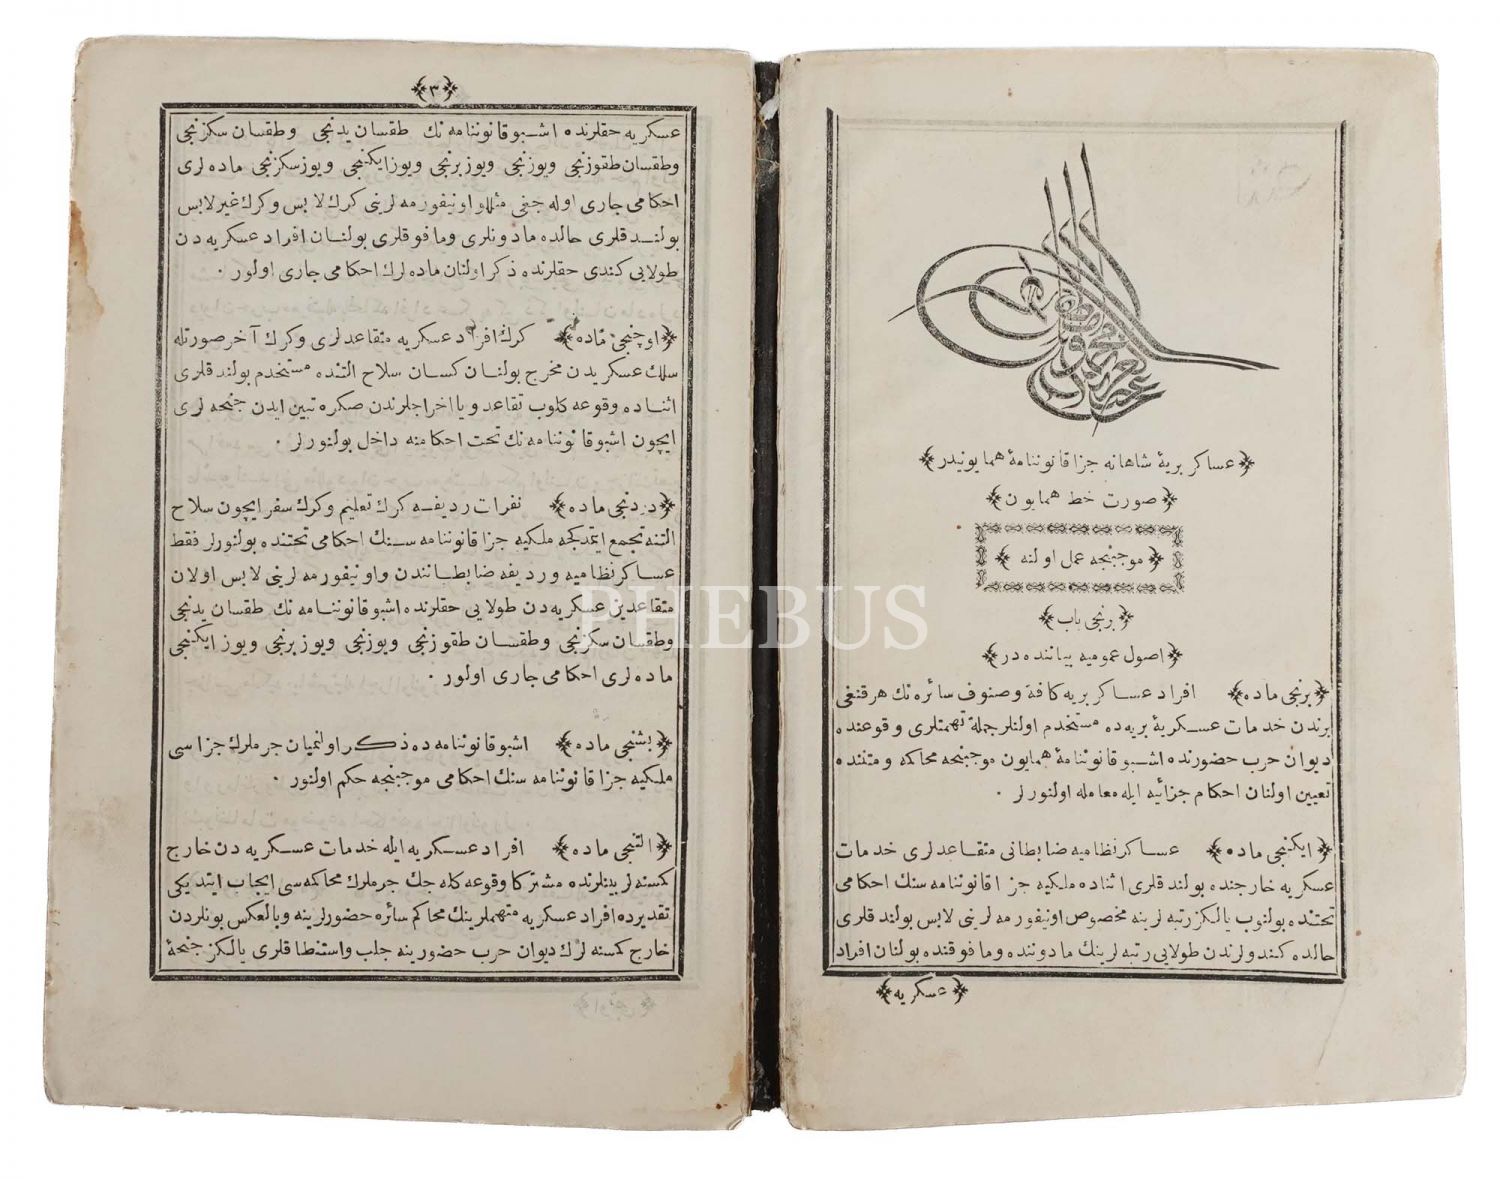 عساکر بریهٔ شاهانه جزا قانوننامهٔ همایونیدر
صورت خط همایون
موجبنجه عمل اولنه
برنجی باب
اصول عمومیه بیاننده در
برنجی ماده افراد عساکر بریه کافهٔ وصنوف سائره نك هر قنغی
برندن خدمات عسکریهٔ بریه ده مستخدم اولنلر جملهٔ تهمتلری وقوعنده
دیوان حرب حضورنده اشبو قانوننامهٔ همایون موجبنجه محاکمه و متننده
تعیین اولنان احکام جزائیه ایله معامله اولنورلر ۰
ایکنجی ماده عساکر نظامیه ضابطانی متقاعدلری خدمات
عسکریه خارجنده بولندقلری اثناده ملکیه جزا قانوننامه سنك احکامی
تحتنده بولنوب یالکز رتبه لرینه مخصوص اونیفورمه لرینی لابس بولندقلری
حالده کندولرندن طولایی رتبه لرینك مادوننده ومافوقنده بولنان افراد
عسکریه
۳
عسکریه حقلرنده اشبو قانوننامه نك طقسان یدنجی وطقسان سکزنجی
وطقسان طقوزنجی ویوزنجی ویوز برنجی ویوز ایکنجی ویوز سکزنجی ماده لری
احکامی جاری اوله جغی مثللو اونیفورمه لرینی کرك لابس وکرك غیر لابس
بولندقلری حالده مادونلری ومافوقلری بولنان افراد عسکریه دن
طولایی کندی حقلرنده ذکر اولنان ماده لرك احکامی جاری اولور ۰
اوچنجی ماده کرك افراد عسکریه متقاعدلری وکرك آخر صورتله
سلك عسکریدن مخرج بولنان کسان سلاح التنده مستخدم بولندقلری
اثناده وقوعه کلوب تقاعد ویا اخراجلرندن صکره تبین ایدن جنحه لری
ایچون اشبو قانوننامه نك تحت احکامنه داخل بولنورلر ۰
دردنجی ماده نفرات ردیفه کرك تعلیم وکرك سفر ایچون سلاح
التنه تجمع ایتمدکجه ملکیه جزا قانوننامه سنك احکامی تحتنده بولنورلر فقط
عساکر نظامیه وردیفه ضابطانندن واونیفورمه لرینی لابس اولان
متقاعدین عسکریه دن طولایی حقلرنده اشبو قانوننامه نك طقسان یدنجی
وطقسان سکزنجی وطقسان طقوزنجی ویوزنجی ویوز برنجی ویوز ایکنجی
ماده لری احکامی جاری اولور ۰
بشنجی ماده اشبو قانوننامه ده ذکر اولنمیان جرملرك جزاسی
ملکیه جزا قانوننامه سنك احکامی موجبنجه حکم اولنور ۰
التنجی ماده افراد عسکریه ایله خدمات عسکریه دن خارج
کمسنه لر بینلرنده مشترکا وقوعه کله جك جرملرك محاکمه سی ایجاب ایتدیکی
تقدیرده افراد عسکریه متهملرینك محاکم سائره حضورلرینه وبالعکس بونلردن
خارج کمسنه لرك دیوان حرب حضورینه جلب واستنطاقلری یالکز جنحهٔ
PHEBUS